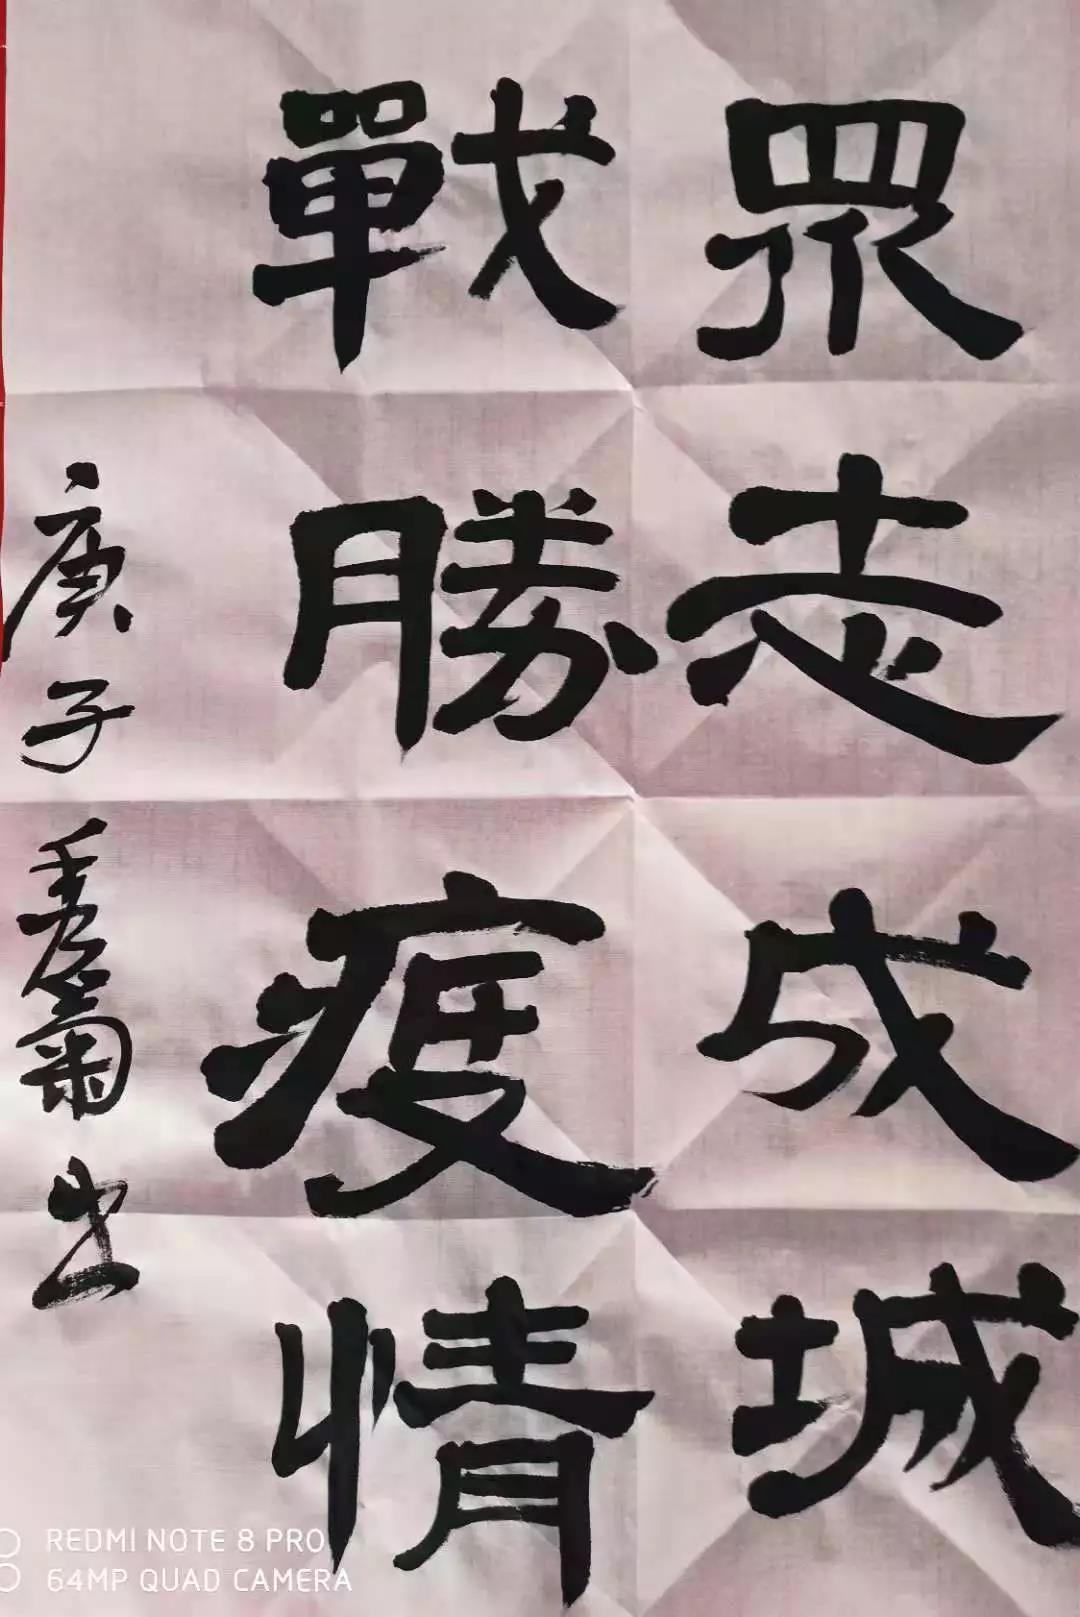 眾志成城
戰勝疫情
庚子秀菊书
REDMI NOTE 8 PRO
64MP QUAD CAMERA